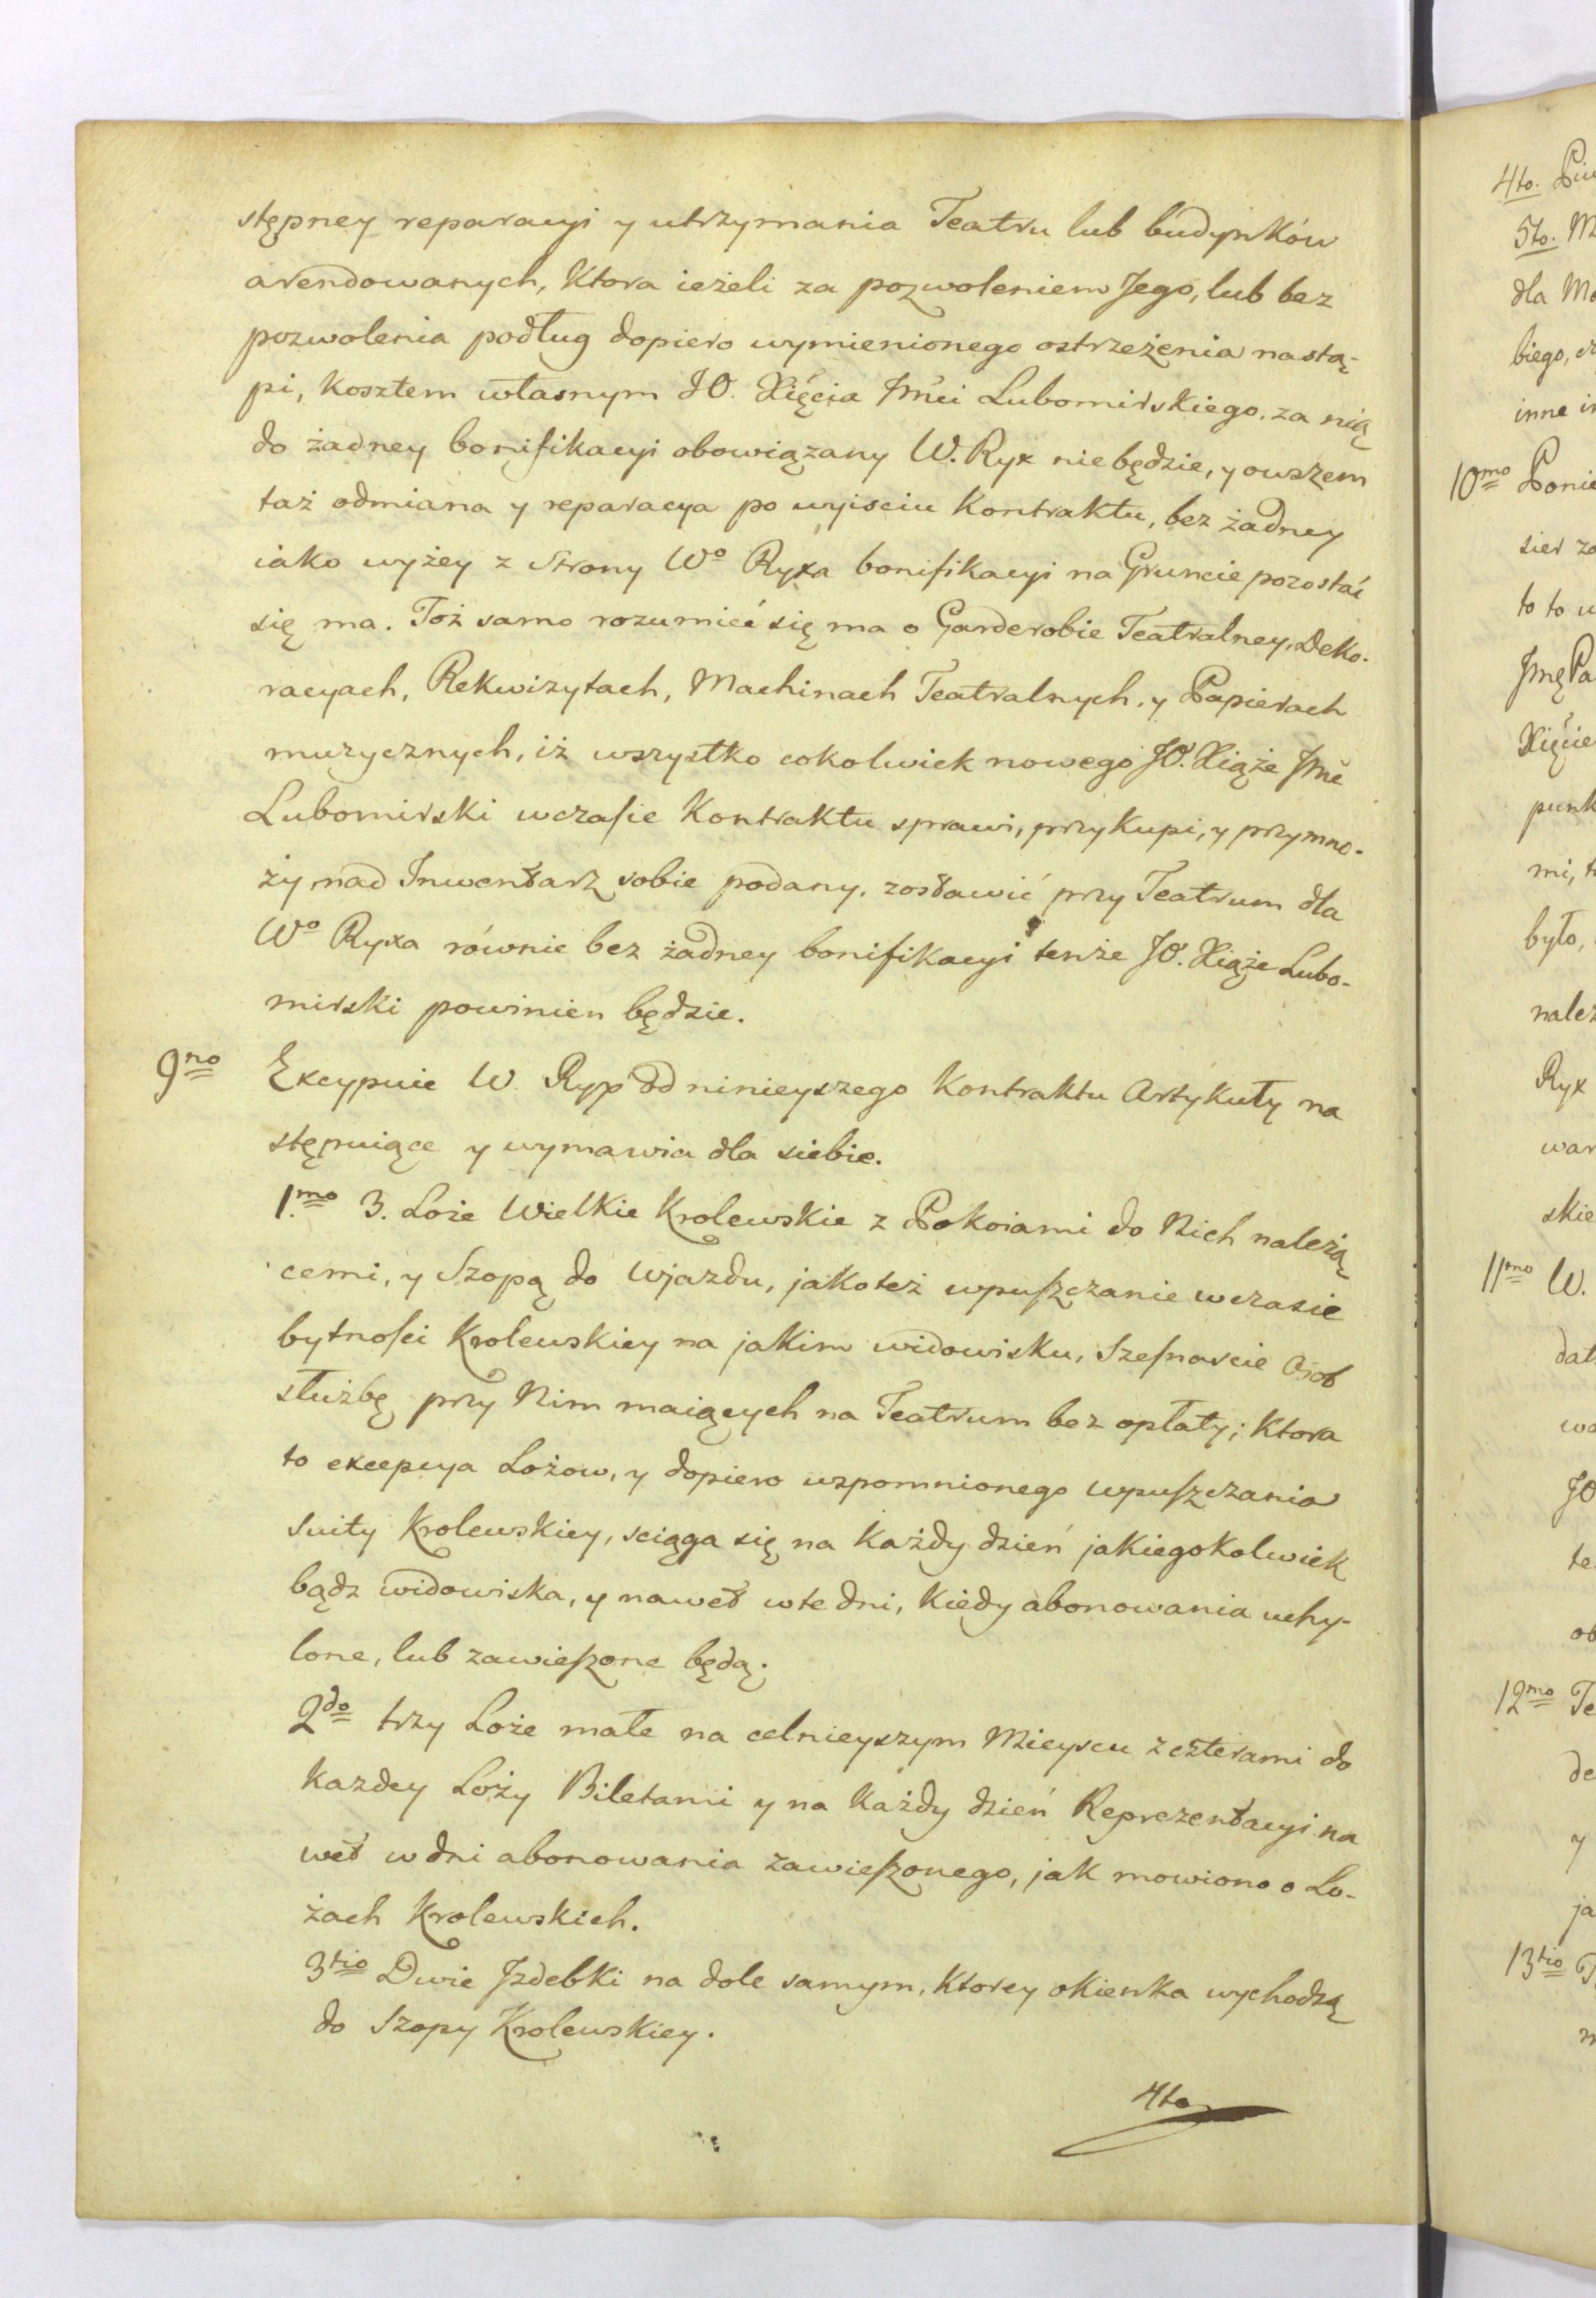 stępney reparacyi y utrzymania Teatru lub budynków
arendowanych, Ktora ieżeli za pozwoleniem Jego, lub bez
pozwolenia podług dopiero wymienionego ostrzeżenia nastą-
pi, Kosztem własnym JO. Xięcia Jmci Lubomirskiego. za nią
do żadney bonifikacyi obowiązany W. Ryx niebędzie, y owszem
taż odmiana y reparacya po wyisciu Kontraktu, bez żadney
iako wyżey z Strony Wo Ryxa bonifikacyi na Gruncie pozostać
się ma. Toż samo rozumieć się ma o Garderobie Teatralney, Deko-
racyach, Rekwizytach, Machinach Teatralnych, y Papierach
muzycznych, iż wszystko cokolwiek nowego JO. Xiąże Jmć
Lubomirski wczasie Kontraktu sprawi, przykupi, y przymno-
ży nad Inwentarz sobie podany. zostawić przy Teatrum dla
Wo Ryxa równie bez żadney bonifikacyi tenże JO. Xiąże Lubo-
mirski powinien będzie.
9no Excypuie W. Ryx od ninieyszego Kontraktu Artykuły na
stępuiące y wymawia dla siebie.
1mo 3. Loże Wielkie Krolewskie z Pokoiami do Nich należą
cemi, y Szopą do Wjazdu, jakoteż wpuszczanie wczasie
bytności Krolewskiey na jakim widowisku, Szesnascie Osob
służbę przy Nim maiących na Teatrum bez opłaty; Ktora
to excepcya Lożow, y dopiero wspomnionego wpuszczania
Suity Krolewskiey, sciąga się na Każdy dzień jakiegokolwiek
bądz widowiska, y nawet wte dni, Kiedy abonowania uchy-
lone, lub zawieszone będą.
2do trzy Loże małe na celnieyszym Mieyscu z czterami do
Kazdey Loży Biletami y na Każdy dzień Reprezentacyi na
wet w dni abonowania zawieszonego, jak mowiono o Lo-
żach Krolewskich.
3tio Dwie Jzdebki na dole samym, Ktorey okienka wychodzą
do Szopy Krolewskiey.
4to
4to.
5to.
dla
biego,
inne
10mo
to to
Xięcie
mi,
było,
Ryx
skie
11mo W.
JO
12mo
y
13tio